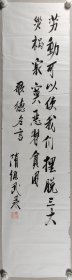 劳动可以使我们摆脱三大
灾祸寂寞恶习贫困
歌德名言
隋继武书